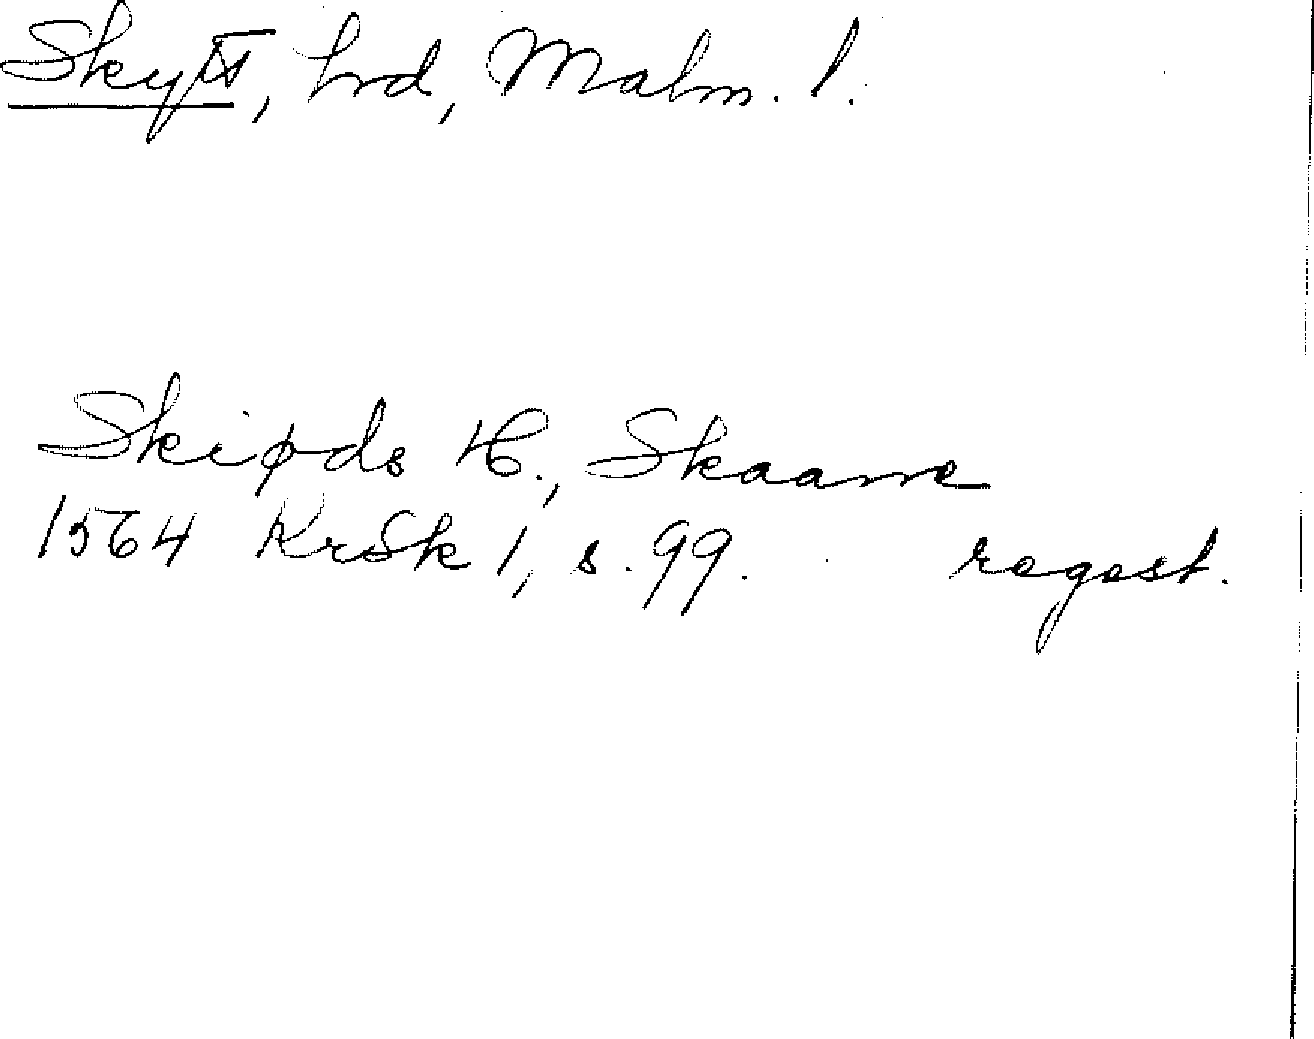 Skytts, hrd, Malm. l.
Skipds H., Skaane
1564 KrSk 1, s. 99. regest.